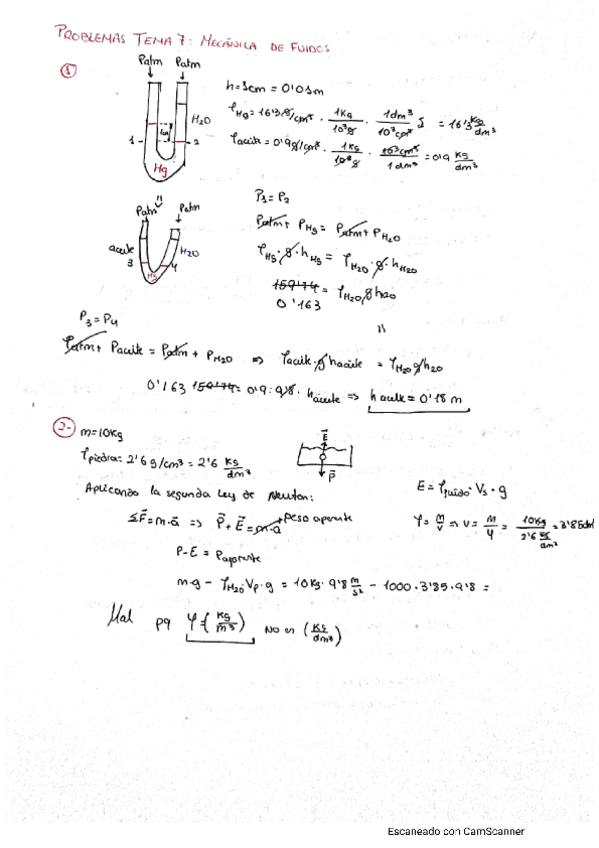 PROBLEMAS TEMA 7: MECÁNICA DE FUIDOS
1
Patm Patm
H2O
1cm
1 - - 2
Hg
h=1cm = 0'01m
ρHg = 16'3 g/cm³ · 1Kg/10³g · 1dm³/10³cm³ = 16'3 Kg/dm³
ρaceite = 0'9 g/cm³ · 1Kg/10³g · 10³cm³/1dm³ = 0'9 Kg/dm³
P1 = P2
Patm + PHg = Patm + PH2O
ρHg · g · hHg = ρH2O · g · hH2O
159'74 = ρH2O g h2O
0'163
=
Patm Patm
aceite H2O
3 4
Hg
P3 = P4
Patm + Paceite = Patm + PH2O => ρaceite · g haceite = ρH2O g h2O
0'163 159'74 = 0'9 · 9'8 · haceite => haceite = 0'18 m
2- m=10Kg
ρpiedra: 2'6 g/cm³ = 2'6 Kg/dm³
E
P
Aplicando la segunda Ley de Newton:
ΣF = m·a => P + E = m·a Peso aparente
E = ρfluido · Vs · g
ρ = m/v => v = m/ρ = 10Kg / 2'6 Kg/dm³ = 3'85dm
P - E = Paparente
m·g - ρH2O · Vp · g = 10Kg · 9'8 m/s² - 1000 · 3'85 · 9'8 =
Mal pq ρ = (Kg/m³) no es (Kg/dm³)
Escaneado con CamScanner